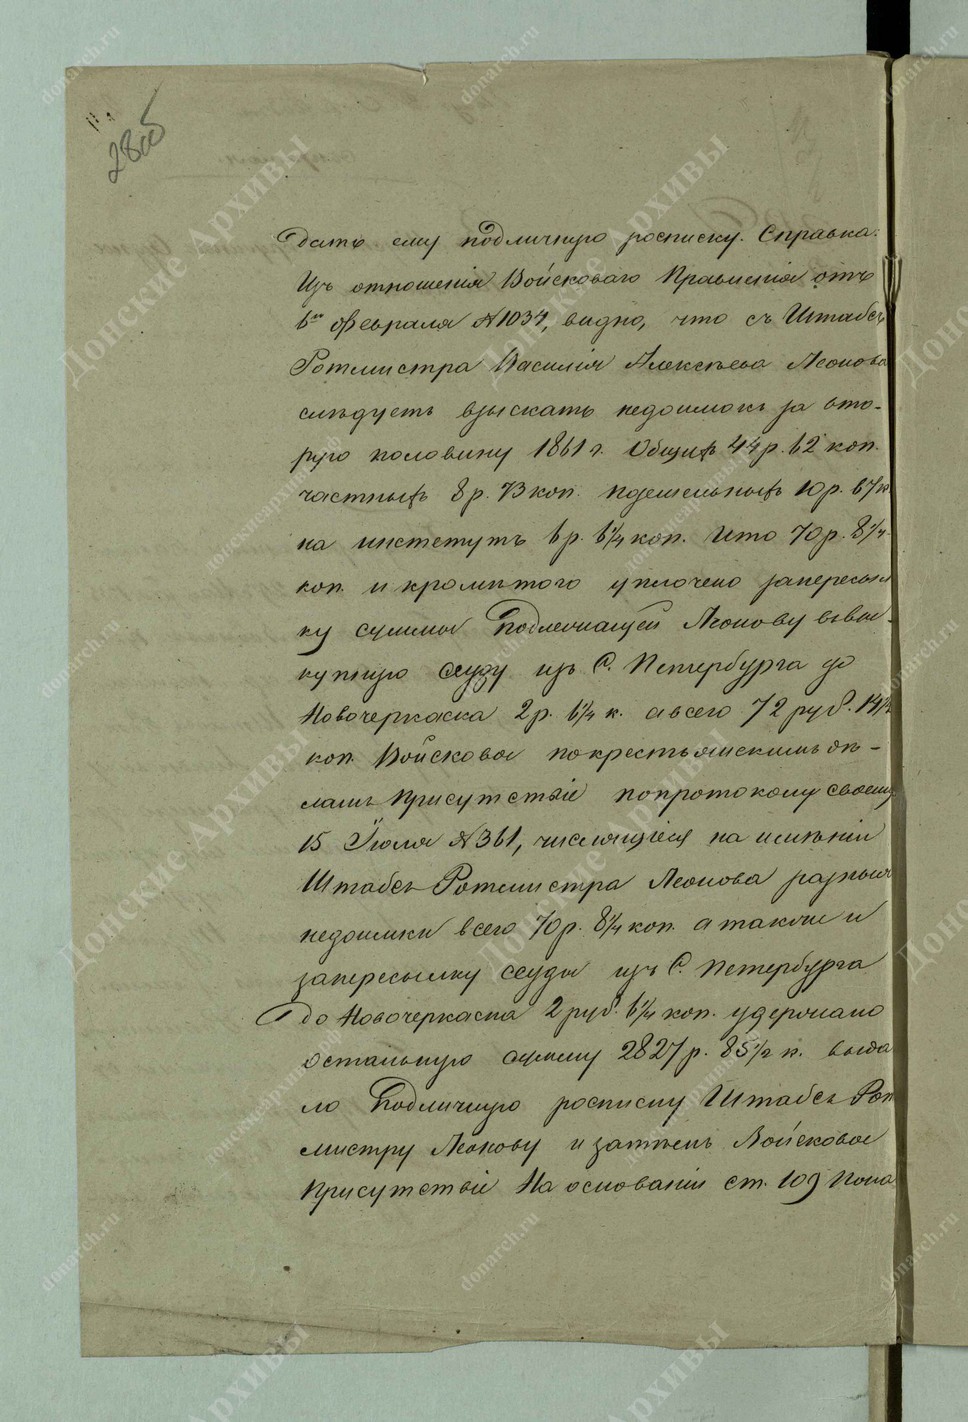 28об
дать ему подличную росписку. Справка:
Изъ отношенія Войсковаго Правленія отъ
6го февраля №1034, видно, что съ Штабсъ
Ротмистра Василія Алексѣева Леонова
слѣдуетъ взыскать недоимокъ за вто-
рую половину 1861 г. Общихъ 44 р. 62 коп.
частныхъ 8 р. 73 коп. пдешельныхъ 10 р. 67 к.
на инстетутъ 6 р. 6¼ коп. Итo 70 р. 8¼
коп. и кромѣтого уплочено запересыл
ку суммы Подлежащей Леонову выку
купную ссуду изъ С. Петербурга до
Новочеркаска 2 р. 6¼ к. авсего 72 руб. 14½
коп. Войсковое покрестьянскимъ дѣ-
ламъ Присутствіе попротоколу своему
15 Іюля №361, числющіеся на имѣніи
Штабсъ Ротмистра Леонова разныя
недоимки всего 70 р. 8¼ коп. а также и
запересылку ссуды изъ С. Петербурга
до Новочеркаска 2 руб. 6¼ коп. удержано
остальную сумму 2827 р. 85½ к. выда
ло Подличную росписку Штабсъ Рот
мистру Леонову и затѣмъ Войсковое
Присутствіе На основаніи ст. 109 Поло